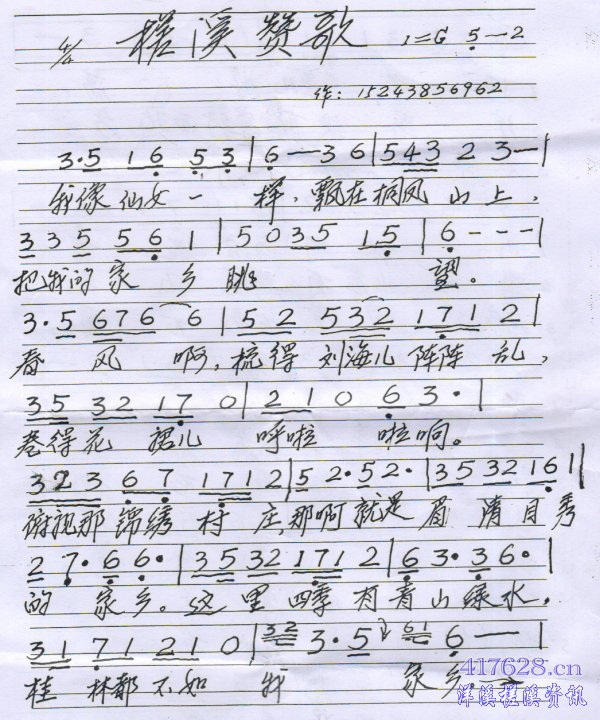 4/4 槎溪赞歌 1=G 5—2
作：15243856962
3·5 16 53|6—36|543 2 3—|
我像仙女一样，飘在桐凤山上，
335 561|5035 15|6---|
把我的家乡眺望。
3·5 676 6|52 532 171 2|
春风啊，梳得刘海儿阵阵乱，
35 32 17 0|210 6 3·|
卷得花裙儿呼啦啦响。
323 67 171 2|5 2·5 2·|35 32 161|
俯视那锦绣村庄，那啊就是眉清目秀
2 7·6 6·|35 32 171 2|6 3·3 6·|
的家乡。这里四季有青山绿水，
31 71 21 0|32 3·5 61 6——|
桂林都不如我家乡。
417628.cn
洋溪槎溪资讯